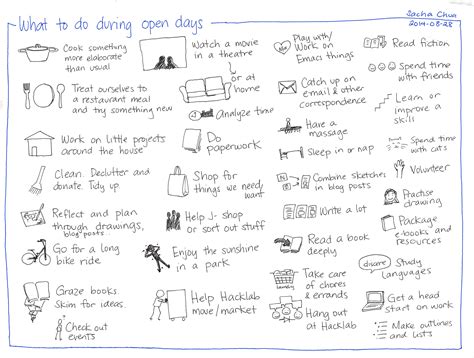 What to do during open days
Sacha Chua
2014-08-28
Cook something
more elaborate
than usual
Treat ourselves to
a restaurant meal
and try something new
Work on little projects
around the house
Clean. Declutter and
donate. Tidy up
Reflect and plan
through drawings,
blog posts
Go for a long
bike ride
Graze books.
Skim for ideas.
Check out
events
Watch a movie
in a theatre
or at
home
Analyze time
Do
paperwork
Shop for
things we need/
want
Help J- shop
or sort out stuff
Enjoy the sunshine
in a park
Help Hacklab
move/market
Play with/
Work on
Emacs things
Catch up on
email & other
correspondence
Have a
massage
Sleep in or nap
Combine sketches
in blog posts
Write a lot
Read a book
deeply
Take care
of chores
& errands
Hang out
at Hacklab
Read fiction
Spend time
with friends
Learn or
improve a
skill
Spend time
with cats
Volunteer
Practise
drawing
Package
e-books and
resources
Study
languages
Get a head
start on work
Make outlines
and lists